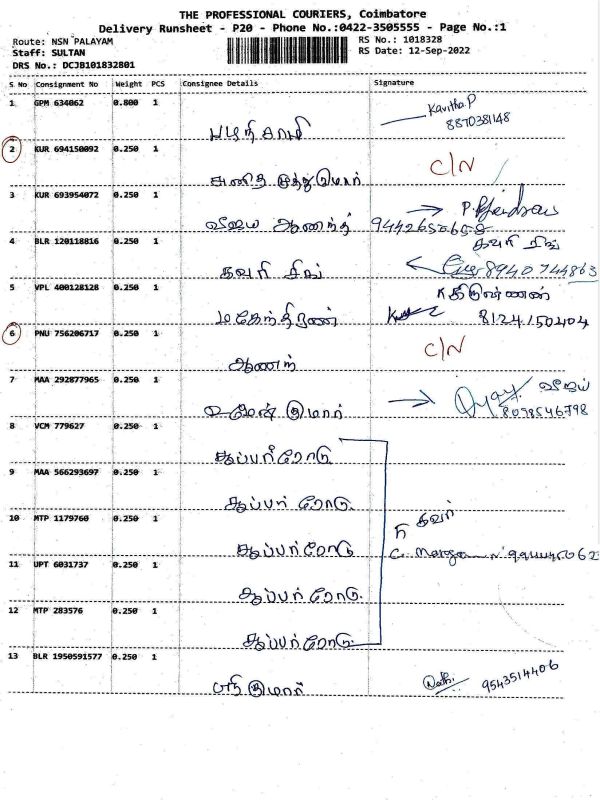 THE PROFESSIONAL COURIERS, Coimbatore
Delivery Runsheet - P20 - Phone No.:0422-3505555 - Page No.:1
Route: NSN PALAYAM
RS No.: 1018328
Staff: SULTAN
RS Date: 12-Sep-2022
DRS No.: DCJB101832801
S No Consignment No Weight PCS Consignee Details Signature
1 GPM 634062 0.800 1
Kavitha.P
8870381148
பழநிசாமி
2 KUR 694150092 0.250 1
C/N
அனித முத்துகுமார்
3 KUR 693954072 0.250 1
விஜய ஆனந்த் 9442650658
4 BLR 120118816 0.250 1
கவரி சிங்
கவரி சிங் 8940744863
5 VPL 400128128 0.250 1
மகேந்திரன் 8124150404
6 PNU 756206717 0.250 1
C/N
ஆனந்
7 MAA 292877965 0.250 1
விஜய்
குமார் 8098546798
8 VCM 779627 0.250 1
சூப்பர் ரோடு
9 MAA 566293697 0.250 1
சூப்பர் ரோடு
10 MTP 1179760 0.250 1
சூப்பர் ரோடு
11 UPT 6031737 0.250 1
சூப்பர் ரோடு
12 MTP 283576 0.250 1
சூப்பர் ரோடு
13 BLR 1950591577 0.250 1
9543514406
குமார்